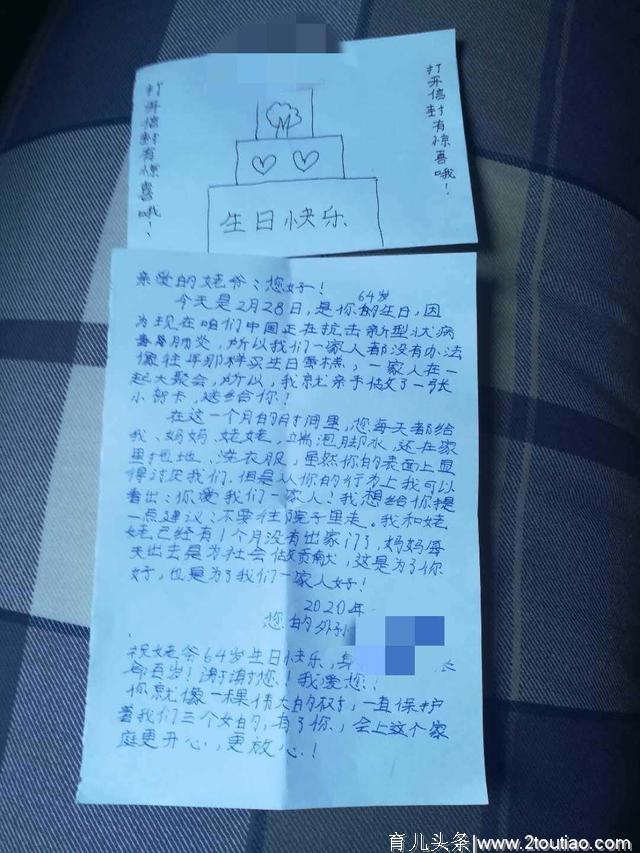 打开信封有惊喜哦！
打开信封有惊喜哦！
M
生日快乐
亲爱的姥爷：您好！
64岁
今天是2月28日，是你的生日，因
为现在咱们中国正在抗击新型状病
毒肺炎，所以我们一家人都没有办法
像往年那样买生日蛋糕，一家人在一
起大聚会，所以，我就亲手做了一张
小贺卡，送给你！
在这一个月的时间里，您每天都给
我、妈妈、姥姥，端泡脚水，还在家
里扫地、洗衣服，虽然你的表面上显
得讨厌我们，但是从你的行为上我可以
看出：你爱我们一家人！我想给你提
一点建议：不要往院子里走。我和姥
姥已经有1个月没有出家门了，妈妈每
天出去是为社会做贡献，这是为了你
好，也是为了我们一家人好！
2020年
您的外孙
祝姥爷64岁生日快乐，身
命百岁！谢谢您！我爱您！
你就像一棵伟大的树，一直保护
着我们三个女的，有了你，会上这个家
庭更开心，更放心！
育儿头条/www.2toutiao.com